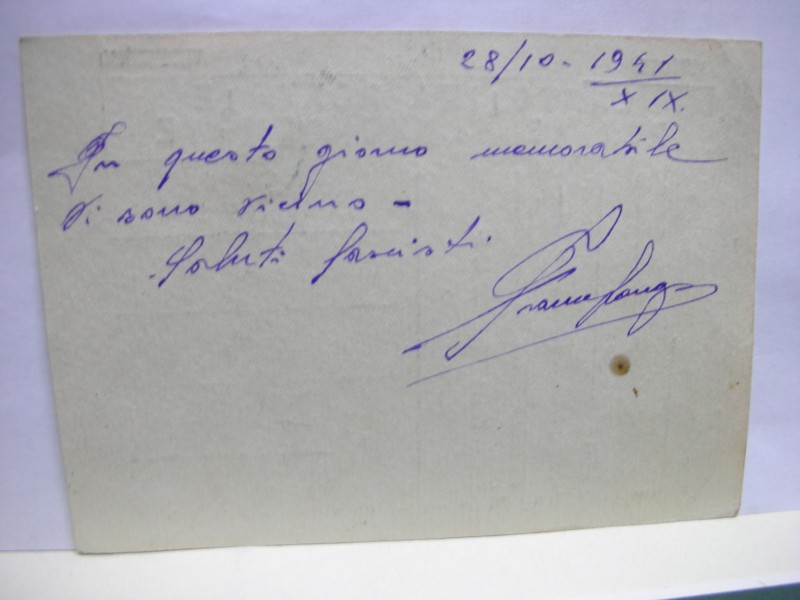 28/10 - 1941
XIX.
In questo giorno memorabile
Vi sono vicino -
Saluti fascisti.